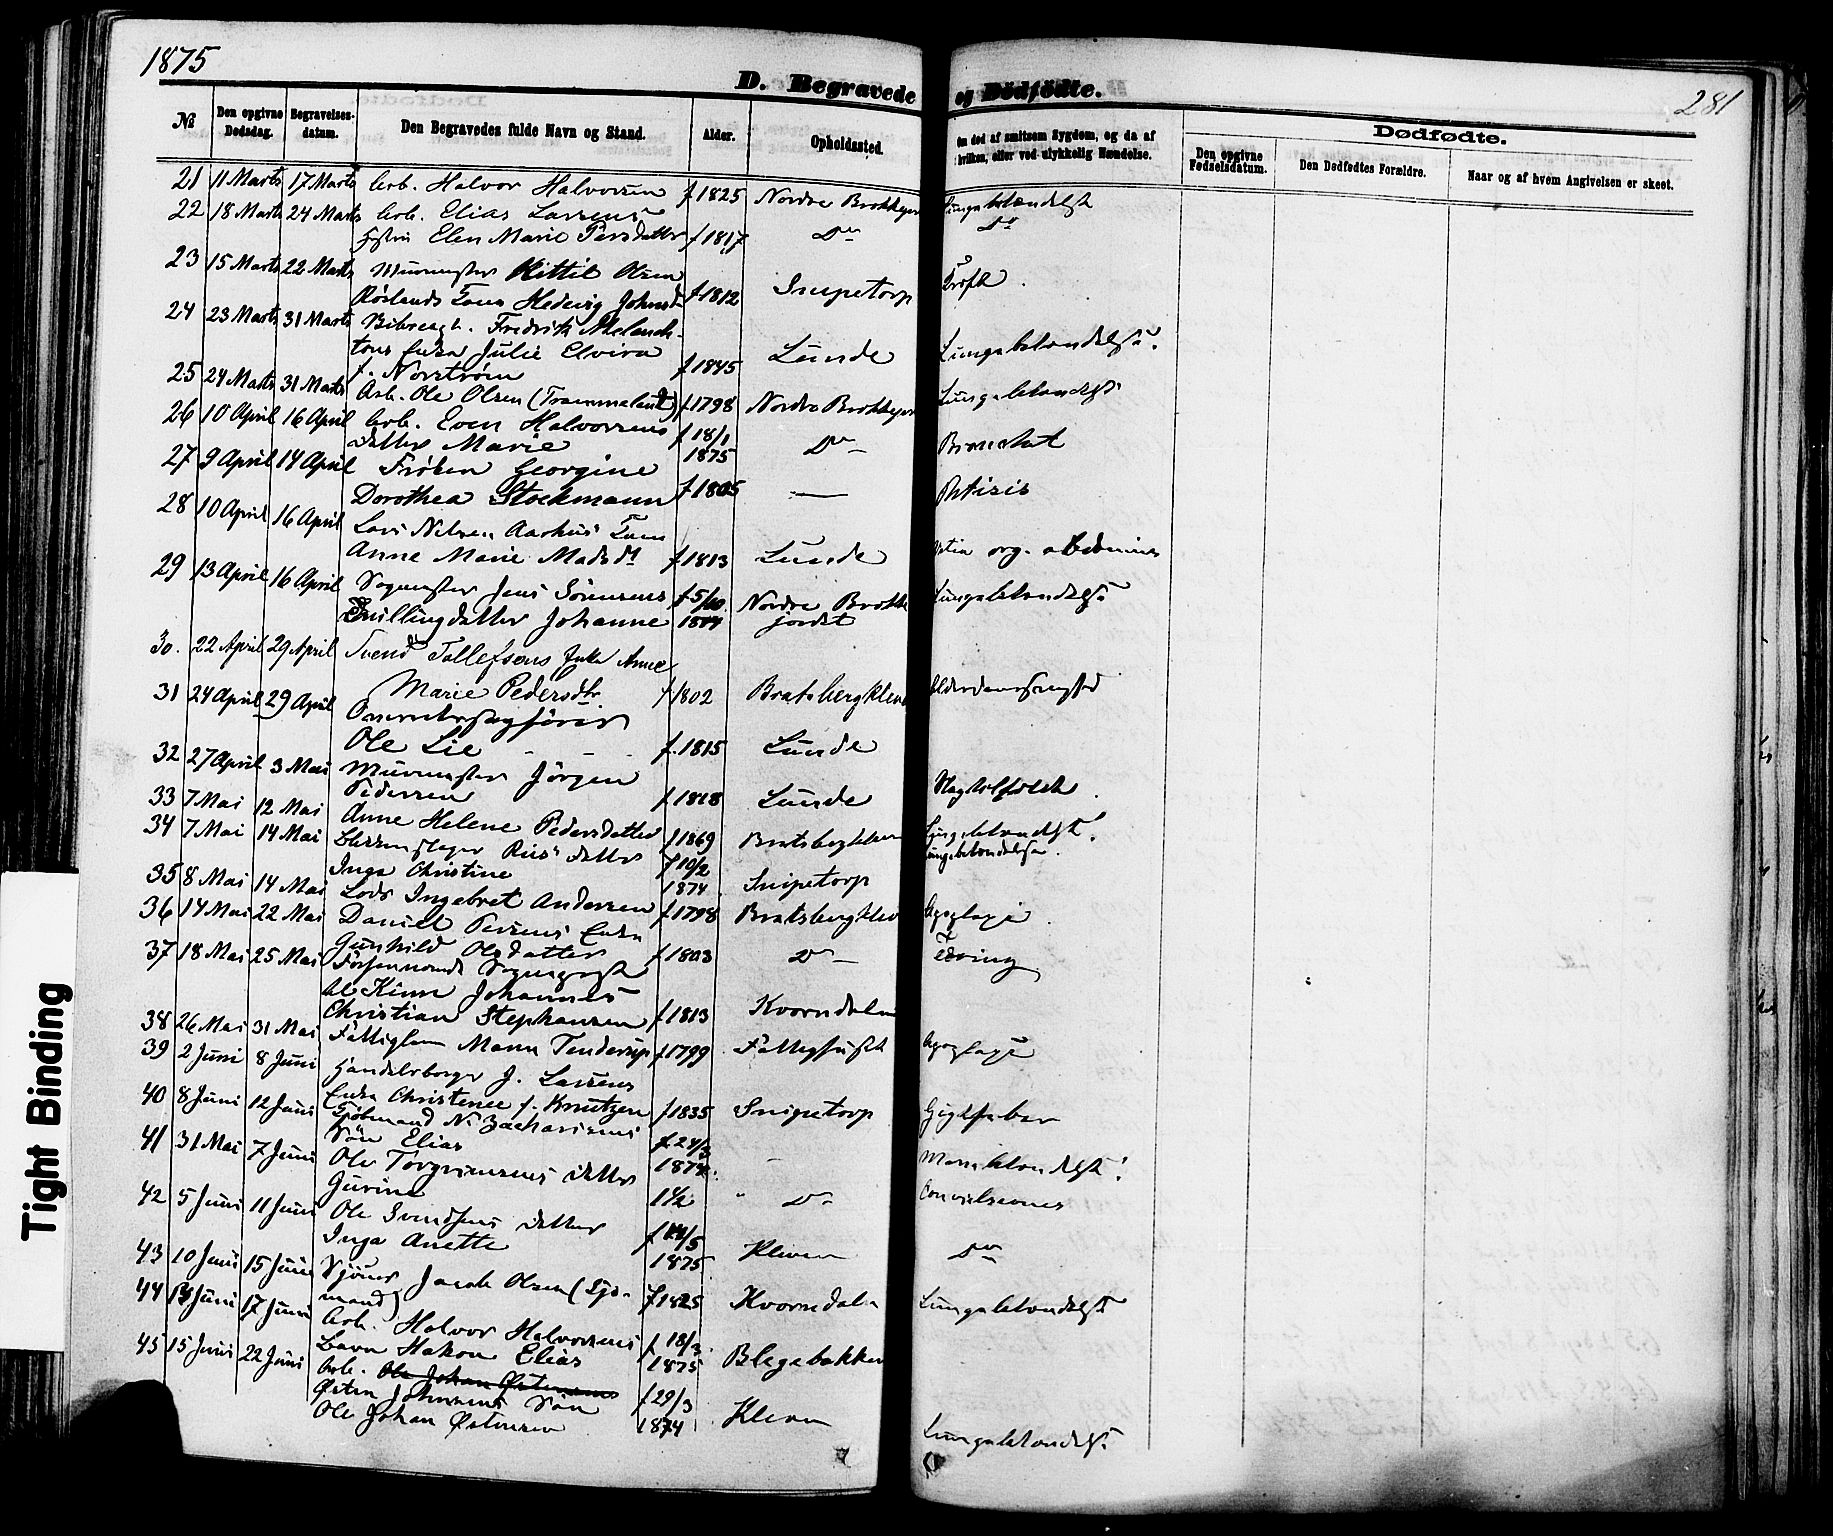 1875
D. Begravede og Dödfödte.
281
№
Den opgivne Dødsdag.
Begravelses-datum.
Den Begravedes fulde Navn og Stand.
Alder.
Opholdssted.
Om død af smitsom Sygdom, og da af hvilken, eller ved ulykkelig Hændelse.
Dødfødte.
Den opgivne Fødselsdatum.
Den Dødfødtes Forældre.
Naar og af hvem Angivelsen er skeet.
21 11 Marts 17 Marts Arb. Halvor Halvorsen f 1825 Nordre Brekkejor Lungebetændelse
22 18 Marts 24 Marts Arb. Elias Larsens
Hustru Elen Marie Persdatter f 1817 Do Do
23 15 Marts 22 Marts Muurmester Kittil Olsen
Røslands Kone Hedevig Johnsd f 1812 Snipetorp
24 23 Marts 31 Marts Fredrik Melanch-
tons Enke Julie Elvira
f. Norström f 1845 Lunde Lungebetændelse.
25 24 Marts 31 Marts Arb. Ole Olsen f 1798 Nordre Brekkejor Lungebetændelse
26 10 April 16 April Arb. Even Halvorsens
datter Marie f 18/1 1875 Do
27 9 April 14 April Frøken Georgine
Dorothea Stockmann f 1805 — Phtisis
28 10 April 16 April Lars Nilsen Aarhus Kone
Anne Marie Madsdt f 1813 Lunde org. abdominis
29 13 April 16 April Jens Sörensens
Tvillingdatter Johanne f 5/10 1874 Nordre Brekke
jordet Lungebetændelse
30. 22 April 29 April Svend Tollefsens Enke Anne
Marie Pedersdtr. f 1802 Bratsbergklev Alderdomssvaghed
31 24 April 29 April Overretssagfører
Ole Lie f. 1815 Lunde
32 27 April 3 Mai Muurmester Jörgen
Pedersen f 1818 Lunde Slagtilfælde
33 7 Mai 12 Mai Anne Helene Pedersdatter f 1869 Bratsbergkleven Lungebetændelse.
34 7 Mai 14 Mai Riis' datter
Inga Christine f 19/2 1874 Snipetorp Lungebetændelse.
35 8 Mai 14 Mai Lods Ingebret Andersen f 1798 Bratsbergklev Apoplexi
36 14 Mai 22 Mai Daniel Persens Enke
Gunhild Olsdatter f 1803 Do Tæring
37 18 Mai 25 Mai Sogneprest
til Kinn Johannes
Christian Stephansen f 1813 Kverndalen
38 26 Mai 31 Mai Fattiglem Maren Tenderup f 1799 Fattighuset Apoplexi
39 2 Juni 8 Juni Handelsborger J. Larsens
Enke Christense f. Knutzen f 1835 Snipetorp Gigtfeber
40 8 Juni 12 Juni N. Zachariasens
Sön Elias f 24/3 1874.
41 31 Mai 7 Juni Ole Torgrimsens datter
Gurine 1 1/2 " Do Convulsiones
42 5 Juni 11 Juni Ole Svendsens datter
Inga Anette f 14/5 1875 Kleven Do
43 10 Juni 15 Juni Jacob Olsen (Sjö-
mand) f 1825 Kverndalen Lungebetændelse
44 13 Juni 17 Juni Arb. Halvor Halvorsens
Barn Hakon Elias f 18/3 1875 Blegebakken
45 15 Juni 22 Juni Arb. Ole Johan Østensens
Østen Johnsens Sön
Ole Johan Østensen f 29/3 1874 Kleven Lungebetændelse
Tight Binding